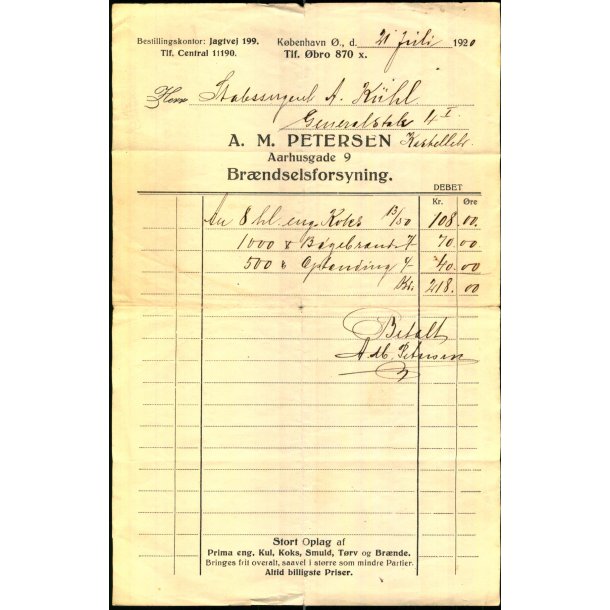 Bestillingskontor: Jagtvej 199.
Tlf. Central 11190.
København Ø., d. 21 Juli 1920
Tlf. Øbro 870 x.
Herr Stabssergent A. Kühl.
Generalstab 4 I
A. M. PETERSEN Kastellet
Aarhusgade 9
Brændselsforsyning.
DEBET
Kr. Øre
An 8 hl. eng. Koks 13/50 108.00.
1000 Bøgebrænde 7 70.00
500 Optænding 40.00
Kr. 218.00
Betalt
A. M. Petersen
Stort Oplag af
Prima eng. Kul, Koks, Smuld, Tørv og Brænde.
Bringes frit overalt, saavel i større som mindre Partier.
Altid billigste Priser.